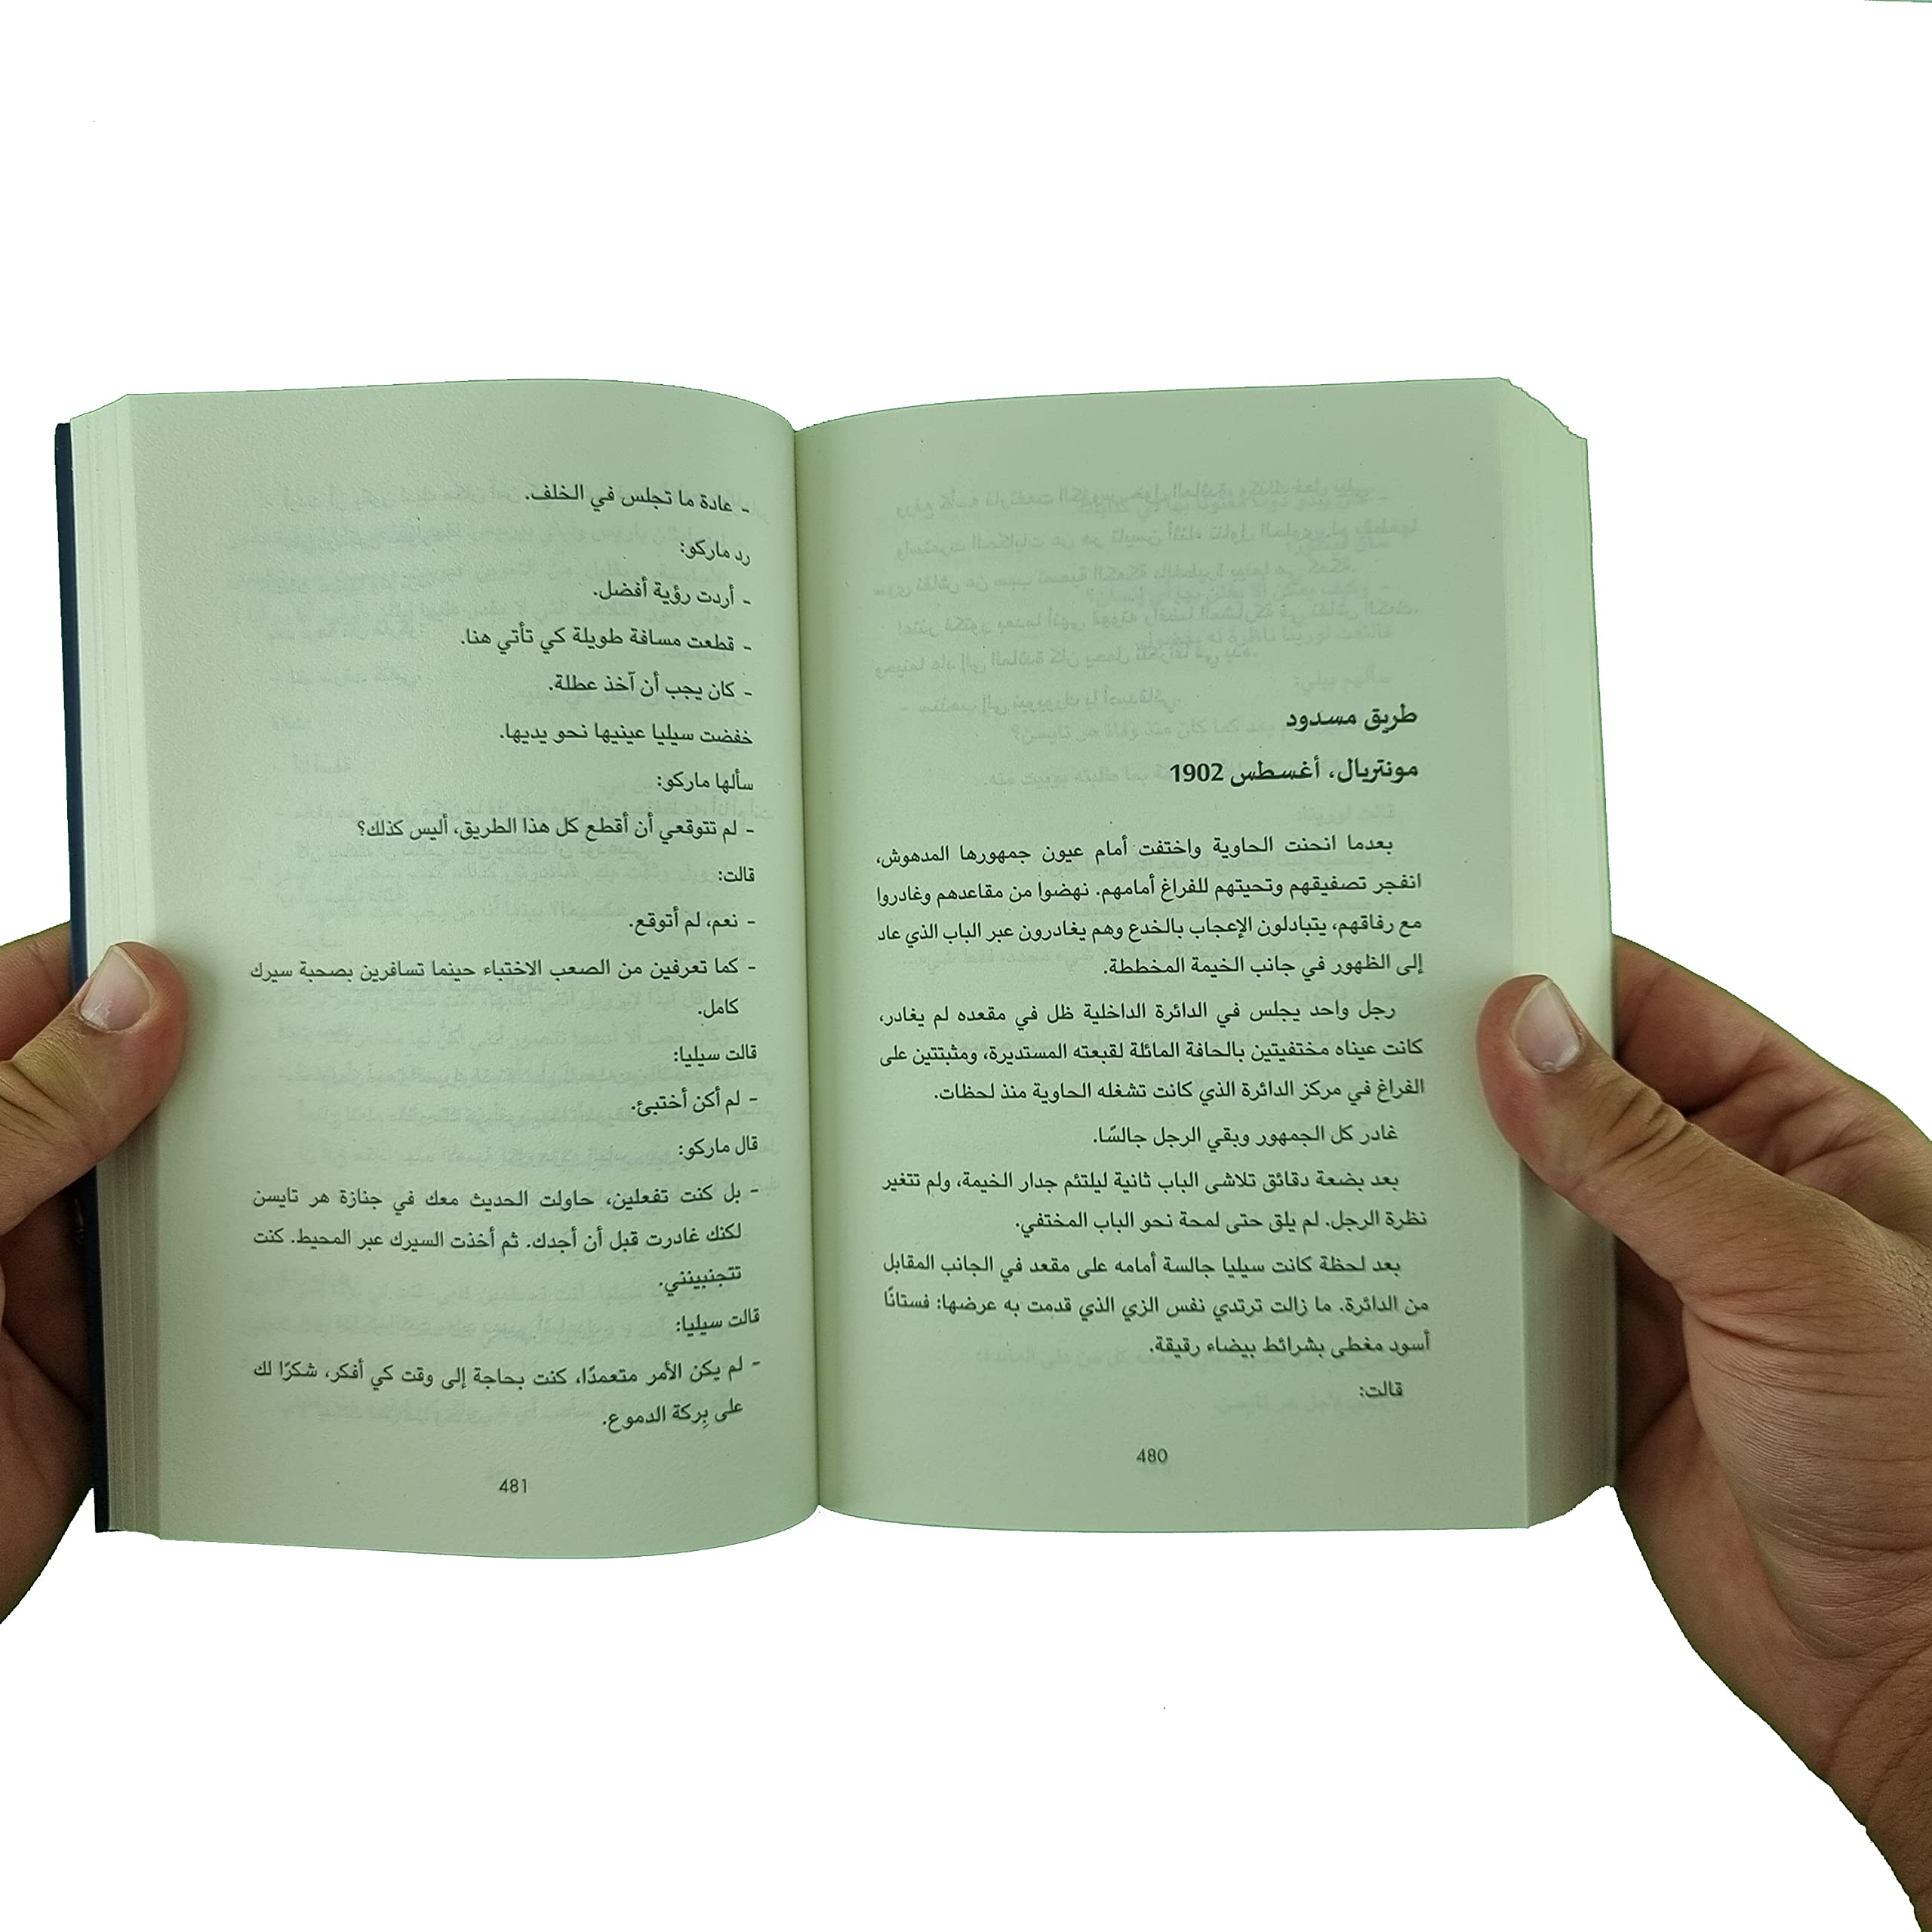 طريق مسدود
مونتريال، أغسطس 1902
بعدما انحنت الحاوية واختفت أمام عيون جمهورها المدهوش،
انفجر تصفيقهم وتحيتهم للفراغ أمامهم. نهضوا من مقاعدهم وغادروا
مع رفاقهم، يتبادلون الإعجاب بالخدع وهم يغادرون عبر الباب الذي عاد
إلى الظهور في جانب الخيمة المخططة.
رجل واحد يجلس في الدائرة الداخلية ظل في مقعده لم يغادر،
كانت عيناه مختفيتين بالحافة المائلة لقبعته المستديرة، ومثبتتين على
الفراغ في مركز الدائرة الذي كانت تشغله الحاوية منذ لحظات.
غادر كل الجمهور وبقي الرجل جالسًا.
بعد بضعة دقائق تلاشى الباب ثانية ليلتئم جدار الخيمة، ولم تتغير
نظرة الرجل. لم يلق حتى لمحة نحو الباب المختفي.
بعد لحظة كانت سيليا جالسة أمامه على مقعد في الجانب المقابل
من الدائرة. ما زالت ترتدي نفس الزي الذي قدمت به عرضها: فستانًا
أسود مغطى بشرائط بيضاء رقيقة.
قالت:
480
- عادة ما تجلس في الخلف.
رد ماركو:
- أردت رؤية أفضل.
- قطعت مسافة طويلة كي تأتي هنا.
- كان يجب أن آخذ عطلة.
خفضت سيليا عينيها نحو يديها.
سألها ماركو:
- لم تتوقعي أن أقطع كل هذا الطريق، أليس كذلك؟
قالت:
- نعم، لم أتوقع.
- كما تعرفين من الصعب الاختباء حينما تسافرين بصحبة سيرك
كامل.
قالت سيليا:
- لم أكن أختبئ.
قال ماركو:
- بل كنت تفعلين، حاولت الحديث معك في جنازة هر تايسن
لكنك غادرت قبل أن أجدك. ثم أخذت السيرك عبر المحيط. كنت
تتجنبينني.
قالت سيليا:
- لم يكن الأمر متعمدًا، كنت بحاجة إلى وقت كي أفكر، شكرًا لك
على بِركة الدموع.
481